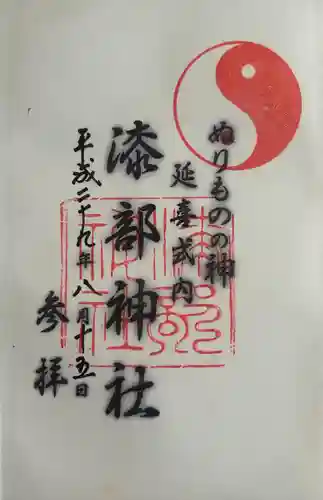 ぬりものの神
延喜式内
漆部神社
平成二十九年八月十五日
参拝
漆部神社